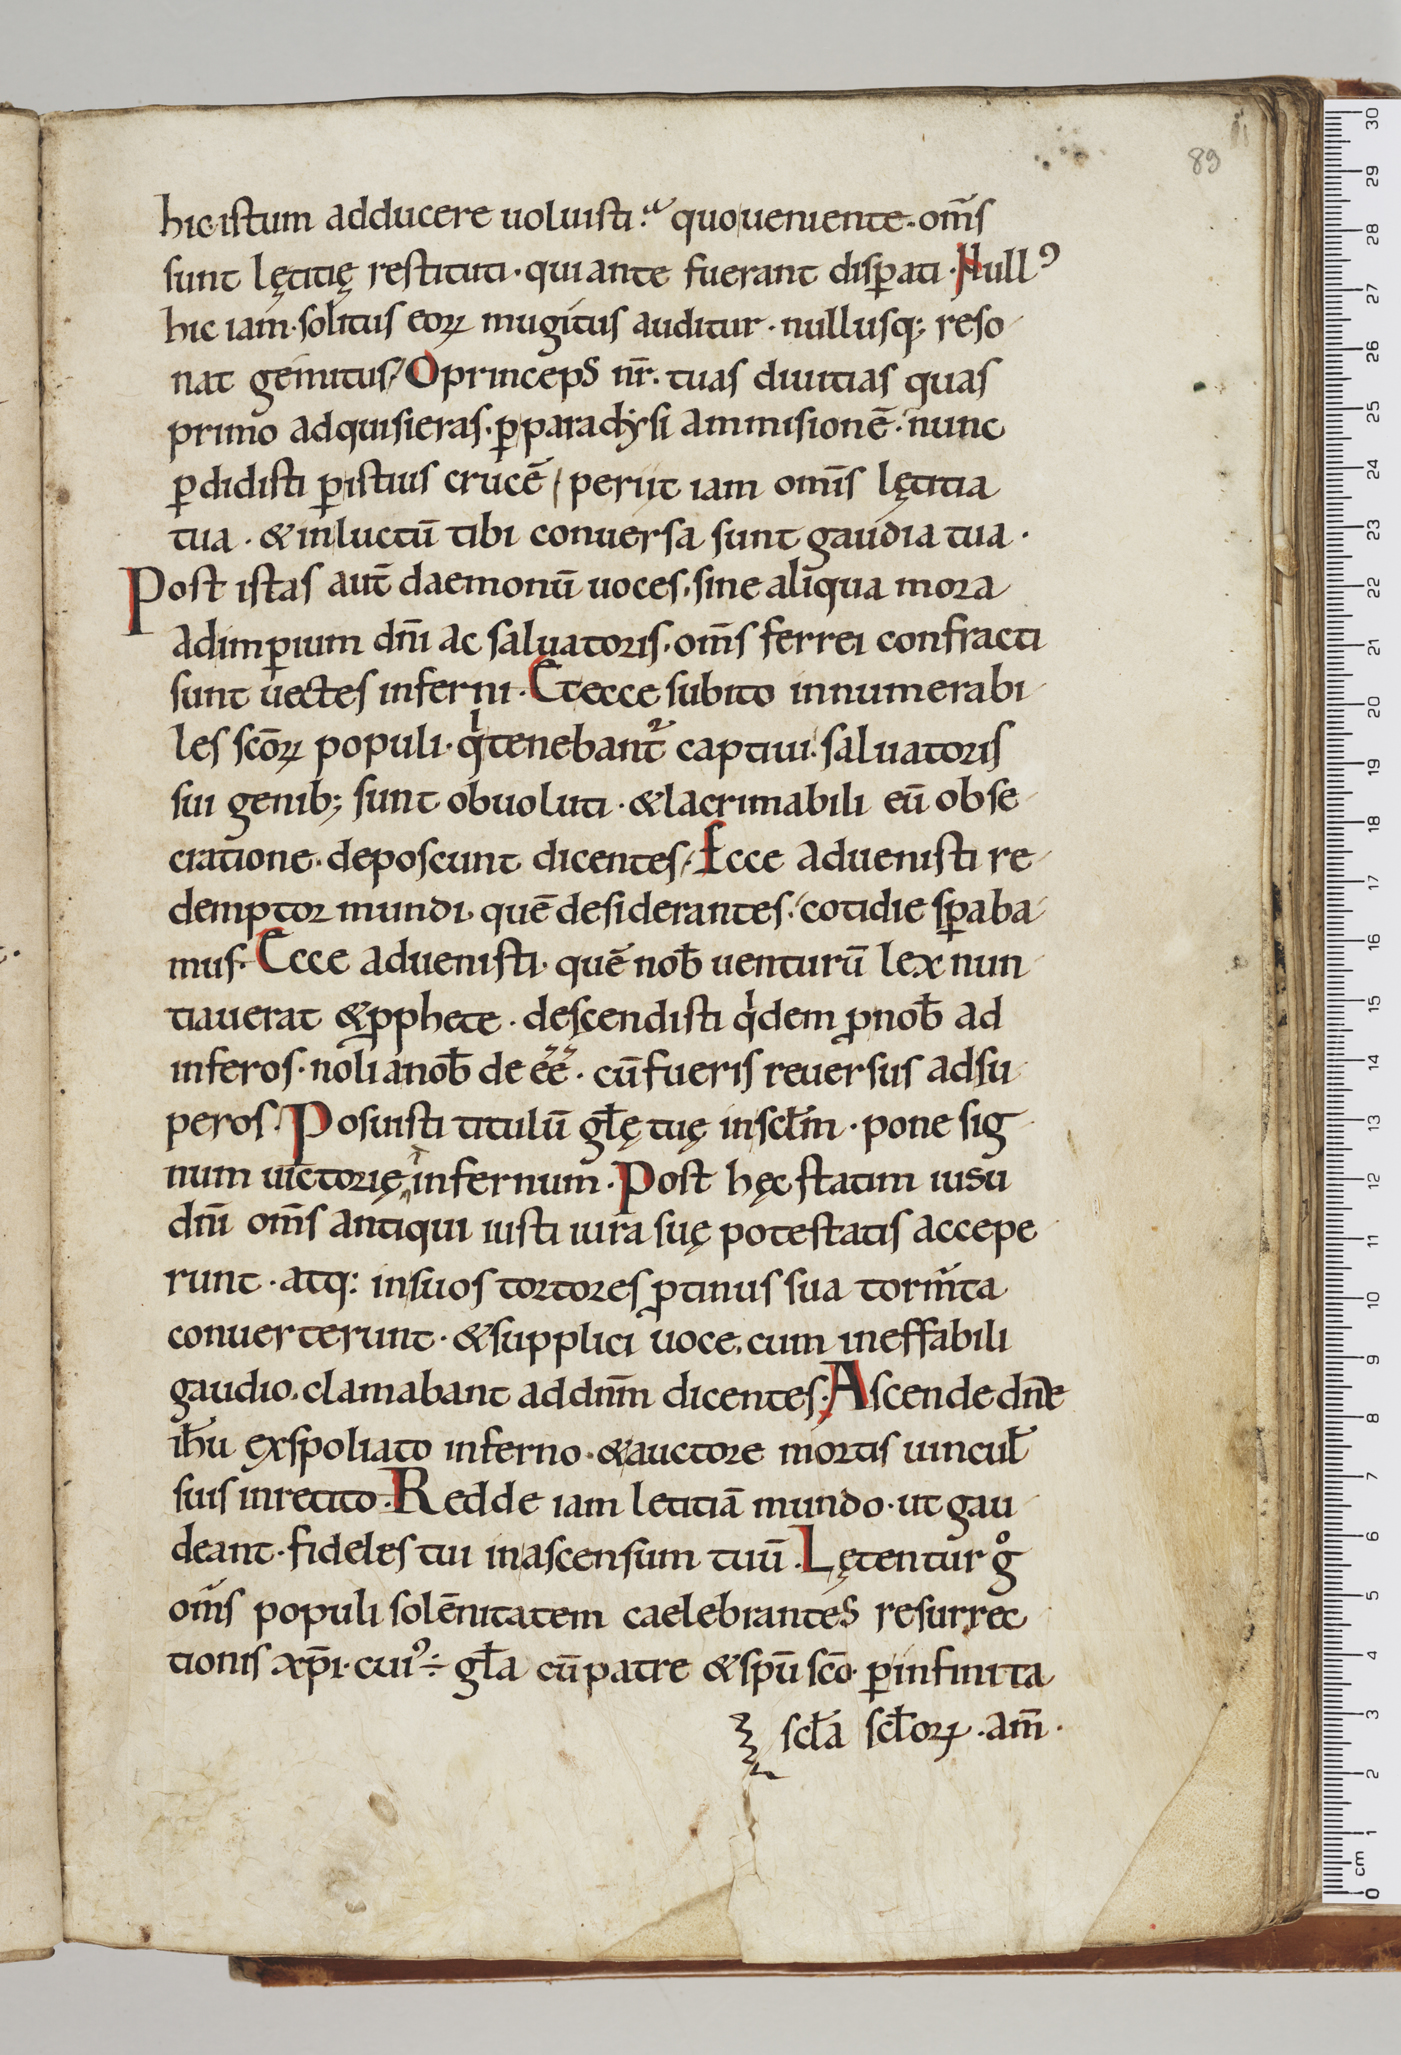 89
hic istum adducere uoluisti. quo ueniente. om̅s
sunt lętitię restituti. qui ante fuerant disꝑati. Nullꝰ
hic iam solitus eoꝝ mugitus auditur. nullusq; reso
nat gemitus. O princeps nr̅. tuas diuitias quas
primo adquisieras. ꝑ paradẏsi ammisionē. nunc
ꝑdidisti ꝑ istius crucē, periit iam omīs lętitia
tua. & in luctū tibi conuersa sunt gaudia tua.
Post istas aut̅ daemonū uoces. sine aliqua mora
ad imꝑium dn̅i ac saluatoris. om̅s ferrei confracti
sunt uectes inferni. Et ecce subito innumerabi
les sc̅oꝝ populi. qͥ tenebant᷑ captiui. saluatoris
sui genib; sunt obuoluti. & lacrimabili eū obse
cratione. deposcunt dicentes. Ecce aduenisti re
demptor mundi. quē desiderantes. cotidie sꝑaba
mus. Ecce aduenisti. quē nob̅ uenturū lex nun
tiauerat & ꝓphete. descendisti qͥdem ꝓ nob̅ ad
inferos. noli a nob̅ de e̋e̋. cū fueris reuersus ad su
peros. Posuisti titulū gl̅ę tuę in scl̅m. pone sig
num uictorię in infernum. Post hęc statim iusu
dn̅i om̅s antiqui iusti iura suę potestatis accepe
runt. atq: in suos tortores ꝓtinus sua torm̅ta
conuerterunt. & supplici uoce. cum ineffabili
gaudio. clamabant ad dnm̅ dicentes. Ascende dn̅e
ih̅u exspoliato inferno. & auctore mortis uincul̅
suis inretito. Redde iam letitiā mundo. ut gau
deant. fideles tui in ascensum tuū. Lętentur gͦ
om̅s populi solēnitatem caelebrantes resurrec
tionis xp̅i. cuiꝰ ÷ gl̅a cū patre & spū sc̅o. ꝑ infinita
scl̅a scl̅oꝝ. am̅.